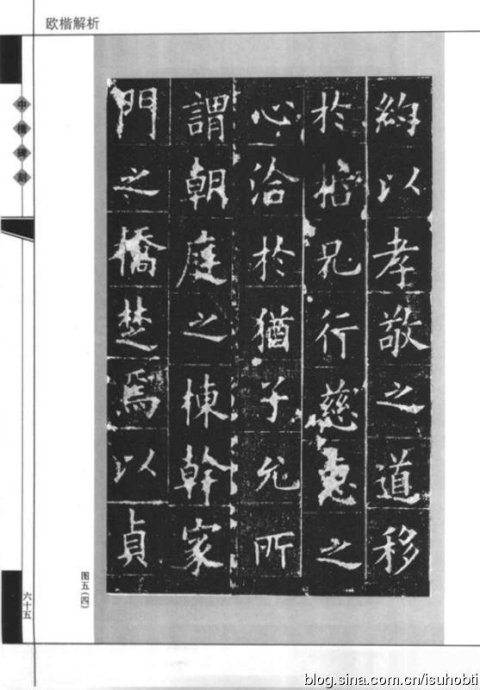 欧楷解析
以孝敬之道移
於兄行慈惠之
心洽於猶子允所
謂朝庭之棟幹家
門之橋楚焉以貞
图五(四)
六十五
blog.sina.com.cn/isuhobti